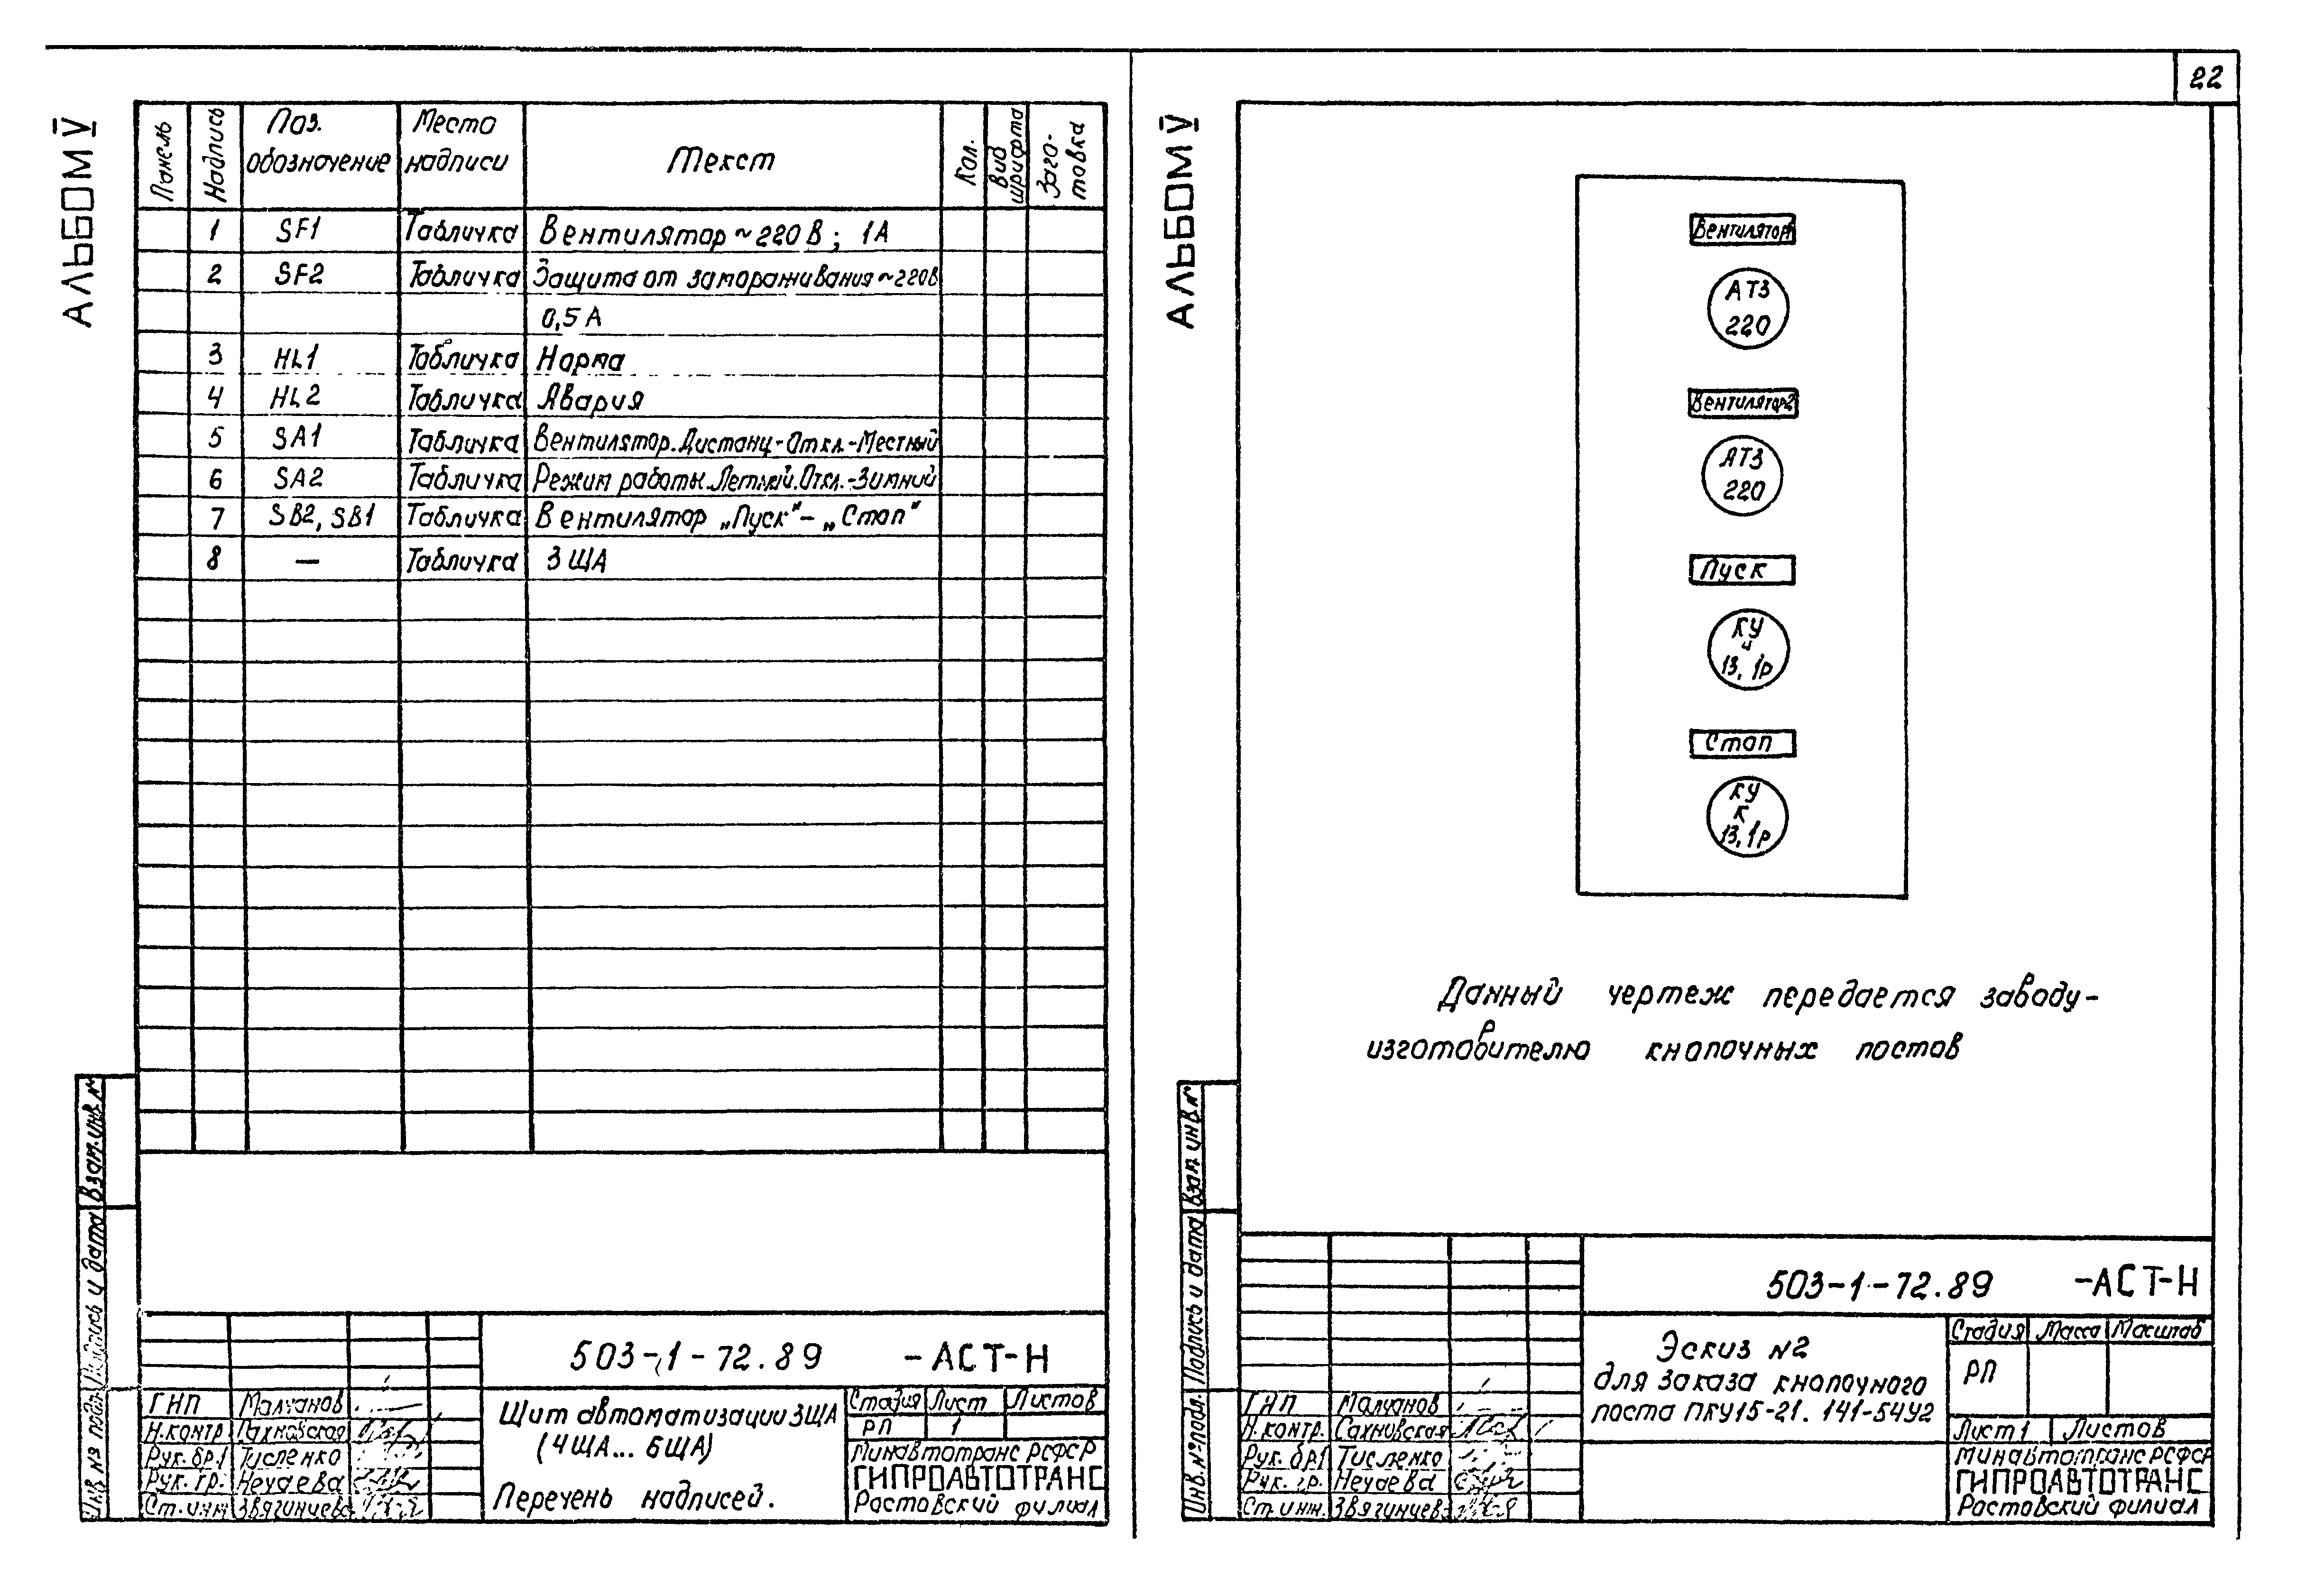 22
АЛЬБОМ V
Панель Надпись Поз. обозначение Место надписи Текст Кол. Вид шрифта Заготовка
1 SF1 Табличка Вентилятор ~220В; 1А
2 SF2 Табличка Защита от замораживания ~220В
0,5А
3 HL1 Табличка Норма
4 HL2 Табличка Авария
5 SA1 Табличка Вентилятор. Дистанц-Откл.-Местный
6 SA2 Табличка Режим работы. Летний. Откл.-Зимний
7 SB2, SB1 Табличка Вентилятор „Пуск"-„Стоп"
8 — Табличка 3ЩА
Инв. № подл. Подпись и дата Взам. инв. №
503-1-72.89 -АСТ-Н
ГНП Молчанов
Н.контр. Сахновская
Рук. бр.1 Тисленко
Рук. гр. Нечаева
Ст. инж. Звягинцева
Щит автоматизации 3ЩА
(4ЩА... 6ЩА)
Перечень надписей.
Стадия Лист Листов
РП 1
Минавтотранс РСФСР
ГИПРОАВТОТРАНС
Ростовский филиал
АЛЬБОМ V
Вентилятор1
АТЗ
220
Вентилятор2
АТЗ
220
Пуск
КУ
Ч
13, 1р
Стоп
КУ
К
13, 1р
Данный чертеж передается заводу-
изготовителю кнопочных постов
Инв. № подл. Подпись и дата Взам. инв. №
503-1-72.89 -АСТ-Н
ГНП Молчанов
Н.контр. Сахновская
Рук. бр.1 Тисленко
Рук. гр. Нечаева
Ст. инж. Звягинцева
Эскиз №2
для заказа кнопочного
поста ПКУ15-21.141-54У2
Стадия Масса Масштаб
РП
Лист 1 Листов
Минавтотранс РСФСР
ГИПРОАВТОТРАНС
Ростовский филиал